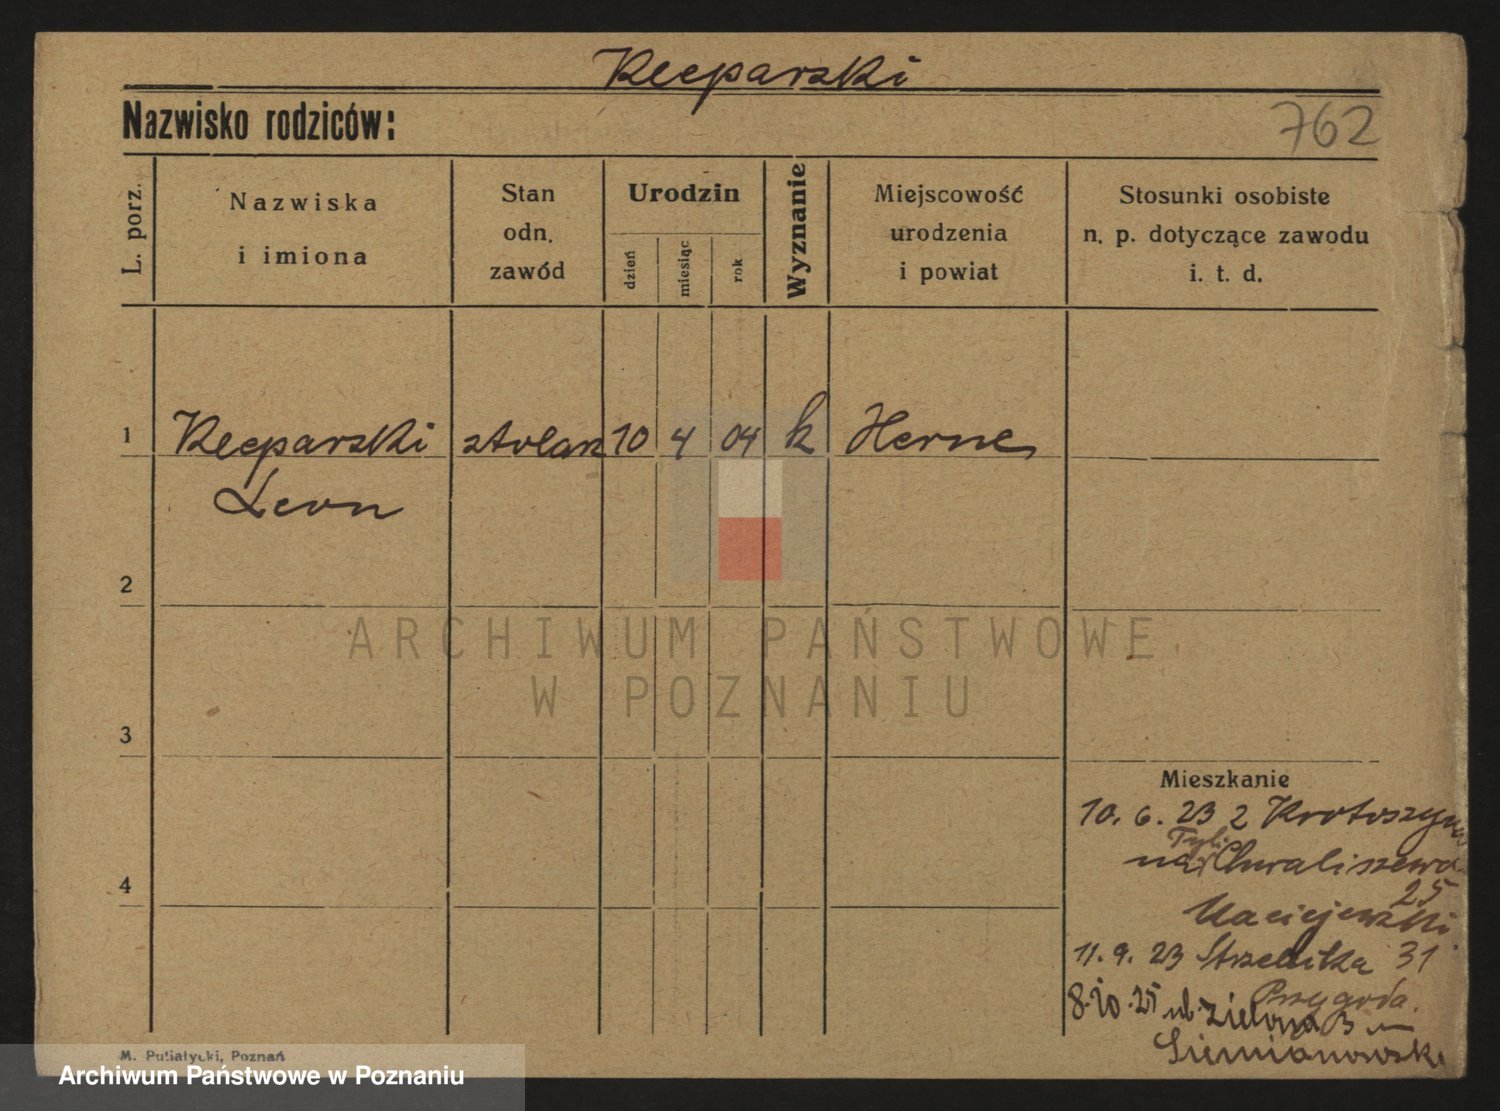 Kleparski
Nazwisko rodziców:
762
L. porz.
Nazwiska
i imiona
Stan
odn.
zawód
Urodzin
dzień
miesiąc
rok
Wyznanie
Miejscowość
urodzenia
i powiat
Stosunki osobiste
n. p. dotyczące zawodu
i. t. d.
1 Kleparski stolarz 10 4 04 k Herne
Leon
2
ARCHIWUM PAŃSTWOWE
W POZNANIU
3
Mieszkanie
10. 6. 23 z Krotoszyna
na Chwaliszewo
4
25
Maciejewski
11. 9. 23 Strzelecka 31
Przygoda.
8.10.25 ul. Zielona 3
Siemianowski
M. Putiatycki, Poznań
Archiwum Państwowe w Poznaniu